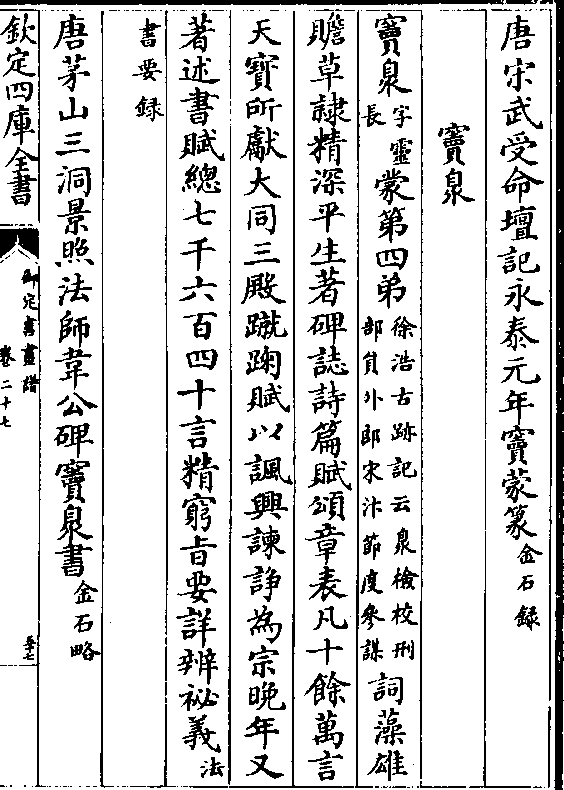 唐宋武受命壇記永泰元年竇蒙篆金石録
竇臮
竇臮字靈長蒙第四弟徐浩古跡記云臮檢校刑部員外郎宋汴節度參謀詞藻雄
贍草隸精深平生著碑誌詩篇賦頌章表凡十餘萬言
天寶所獻大同三殿蹴踘賦以諷興諫諍為宗晚年又
著述書賦總七千六百四十言精窮旨要詳辨祕義法
書要録
唐茅山三洞景照法師韋公碑竇臮書金石略
欽定四庫全書
御定書畫譜
卷二十七